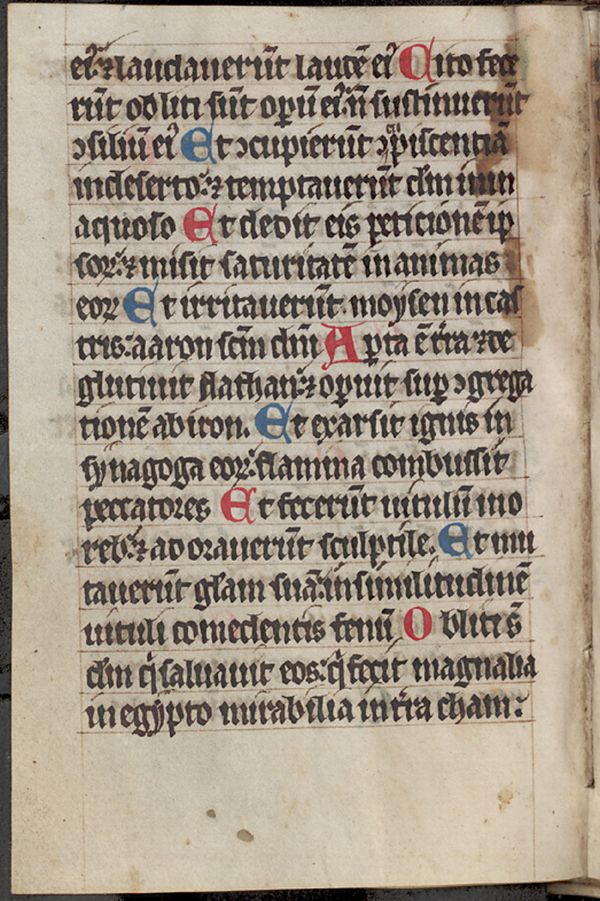 ei᷒. ⁊ laudauerūt laudē ei᷒ Cito fece
rūt obliti sūt operū ei᷒. nō sustinuerūt
ꝯsiliū ei᷒ Et ꝯcupierūt ꝯcupiscentiā
in deserto. ⁊ temptauerūt dm̄ in in
aquoso Et dedit eis peticionē ip
soꝝ. ⁊ misit saturitatē in animas
eoꝝ Et irritauerūt moysen in cas
tris. aaron scm̄ dn̄i Aperta ē terra ⁊ de
glutiuit dathan. ⁊ operuit super ꝯgrega
tionē abiron. Et exarsit ignis in
synagoga eoꝝ. flamma combussit
peccatores Et fecerūt uitulū in o
reb. ⁊ adorauerūt sculptile. Et mu
tauerūt gl̄am suā. in similitudinē
uituli comedentis fenū Obliti s̄
dm̄ qͥ saluauit eos. qͥ fecit magnalia
in egypto mirabilia in terra cham.